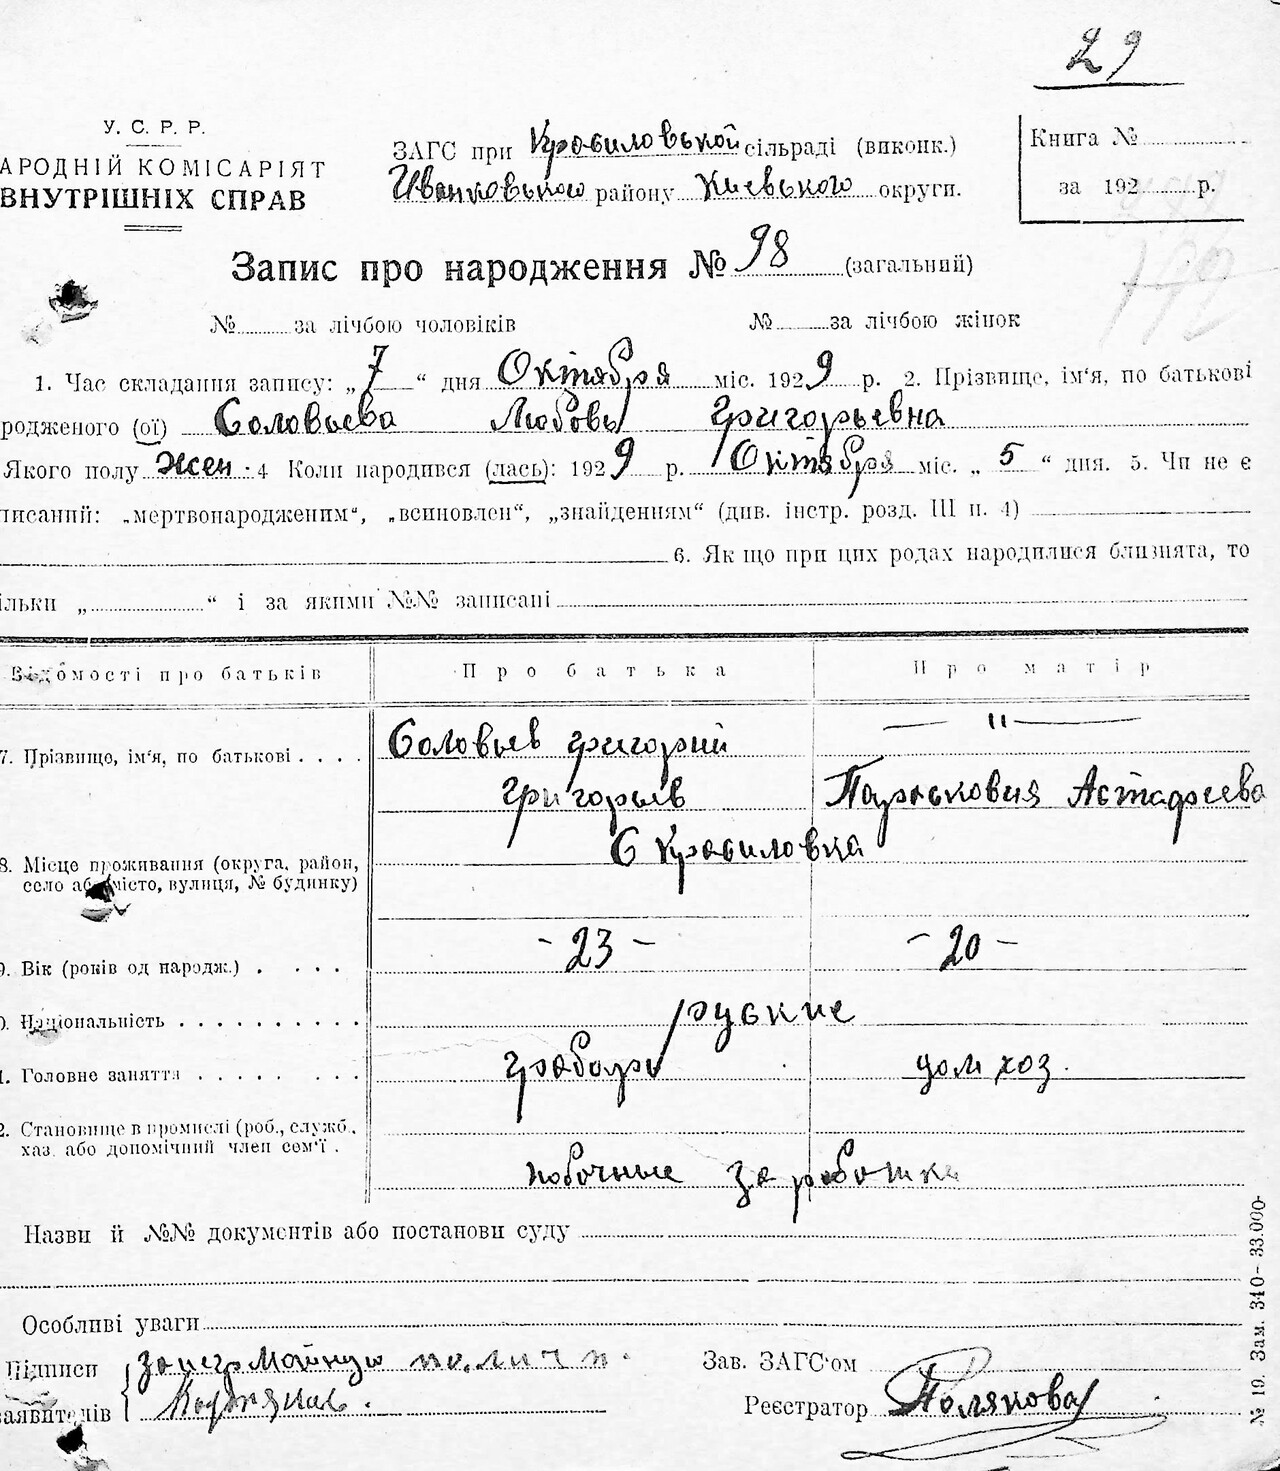 29
У. С. Р. Р.
АРОДНІЙ КОМІСАРІЯТ
ВНУТРІШНІХ СПРАВ
ЗАГС при Кравиловської сільраді (виконк.)
Иванковського району Киевського округи.
Книга №
за 192 р.
172
Запис про народження № 98 (загальний)
№ за лічбою чоловіків № за лічбою жінок
1. Час складання запису: „ 7 “ дня Октября міс. 1929 р. 2. Прізвище, ім'я, по батькові
родженого (ої) Соловьева Любовь Григорьевна
Якого полу жен. 4 Коли народився (лась): 1929 р. Октября міс. „ 5 “ дня. 5. Чи не є
писаний: „мертвонародженим“, „всиновлен“, „знайденням“ (див. інстр. розд. III п. 4)
6. Як що при цих родах народилися близнята, то
ільки „ “ і за якими №№ записані
Відомості про батьків Про батька Про матір
7. Прізвище, ім'я, по батькові . . . . Соловьев Григорий — " —
Григорьев Парасковия Астафеева
8. Місце проживання (округа, район, С Кравиловка
село або місто, вулиця, № будинку)
9. Вік (років од народж.) . . . . - 23 - - 20 -
0. Національність . . . . . . . . . . руские
1. Головне заняття . . . . . . . . грабарь дом хоз.
2. Становище в промислі (роб., служб.,
хаз. або допомічний член сем'ї . побочные заработки
Назви й №№ документів або постанови суду
Особливі уваги
Підписи Зав. ЗАГС'ом
заявителів Реєстратор Полякова
№ 19. Зам. 340 - 33.000